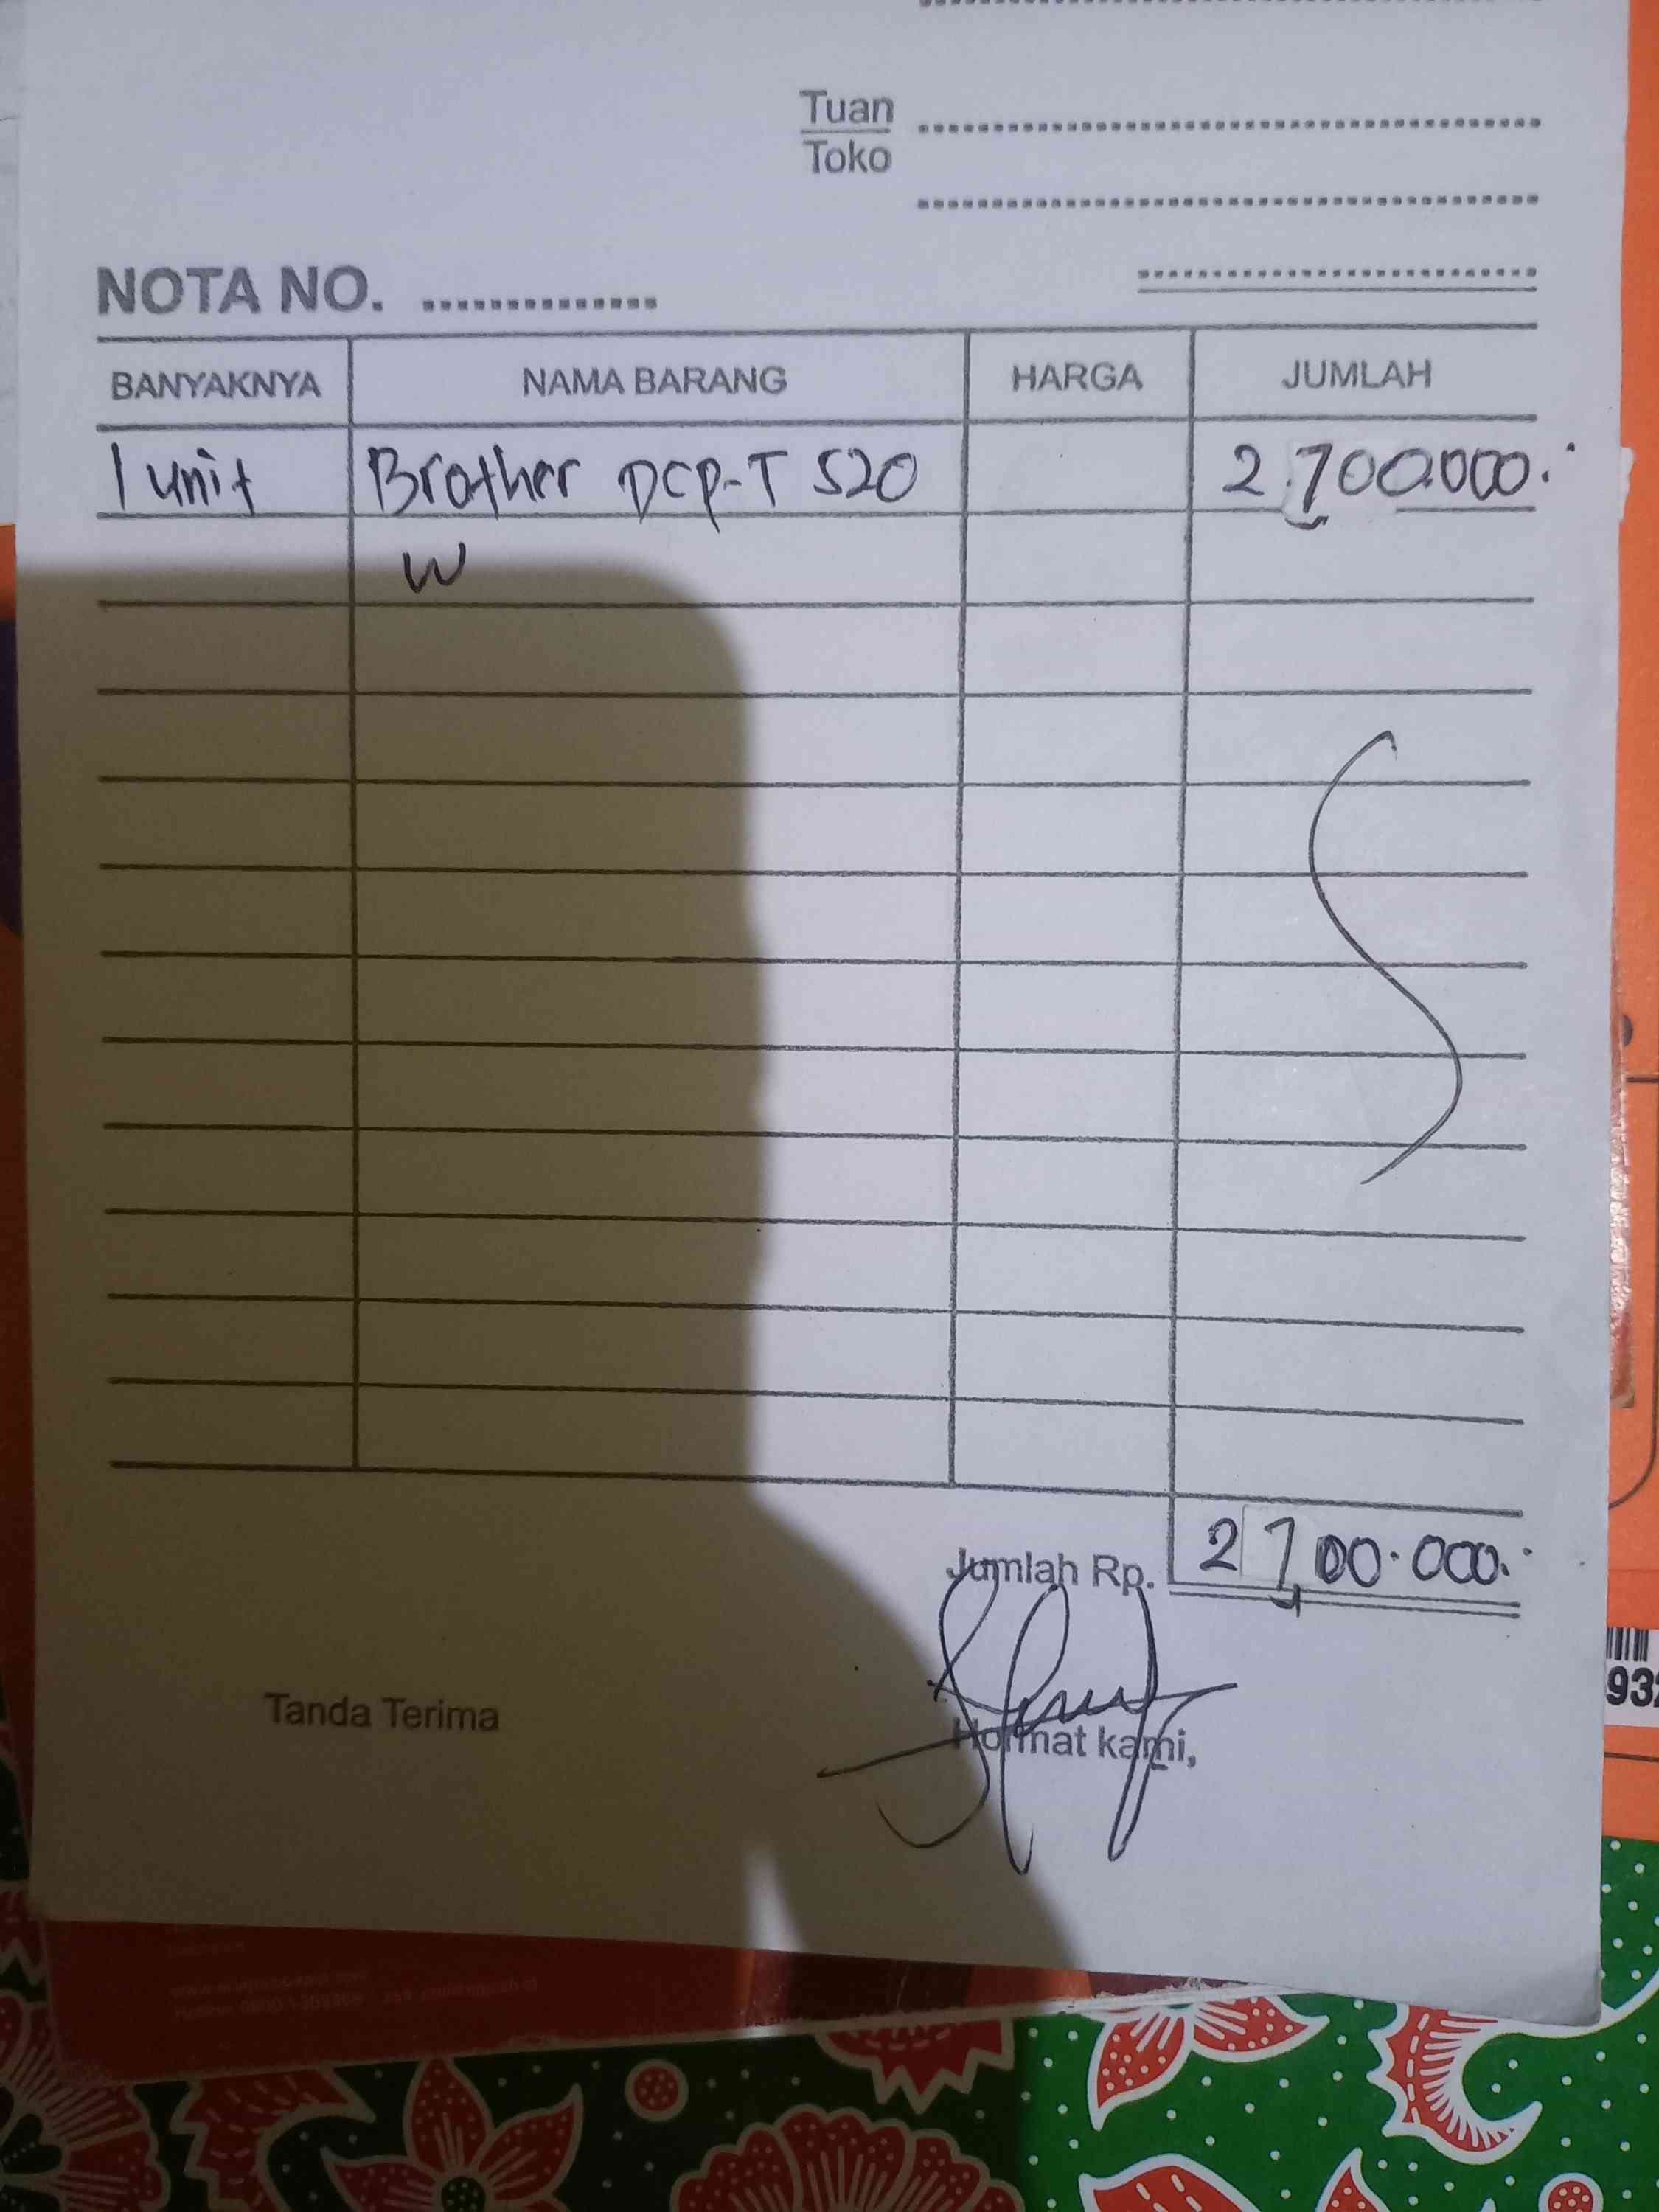 Tuan
Toko
NOTA NO.
BANYAKNYA NAMA BARANG HARGA JUMLAH
1 unit Brother DCP-T 520 2.700.000.-
W
Jumlah Rp. 2 700.000.-
Tanda Terima
Hormat kami,
932